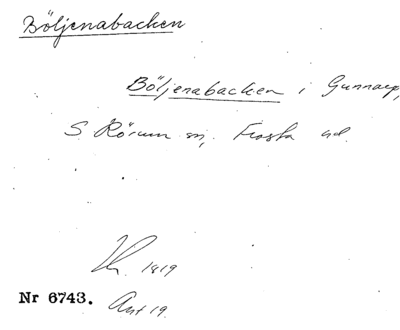 Böljenabacken
Böljenabacken i Gunnarp,
S Rörum sn, Frosta hd.
1819
Nr 6743.
Ant 19.